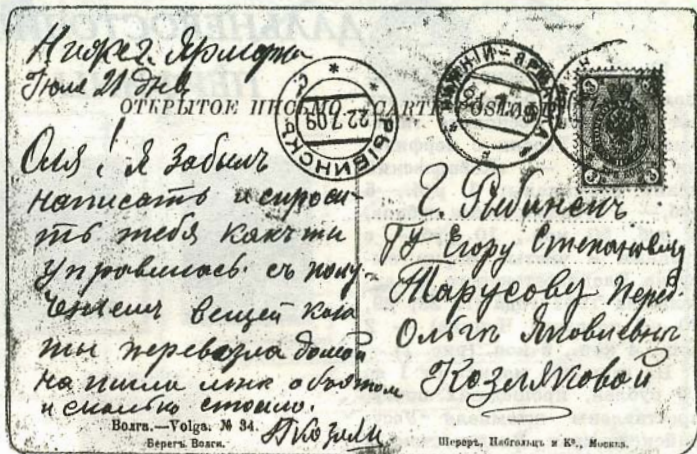 Нижег. Ярмарка
Июля 21 дня
ОТКРЫТОЕ ПИСЬМО. CARTE POSTALE
РЫБИНСКЪ
22.7.09
НИЖНІЙ-ЯРМАРКА
Оля! Я забылъ
написать и спроси-
ть тебя какъ ты
управилась съ полу-
ченіемъ вещей кога
ты перевозла домой
напиши мнѣ объ этом
и сколько стоило.
ПКозля
Г. Рыбинскъ
ЕВ Егору Степановичу
Тарусову перед.
Ольгѣ Яковлевнѣ
Козляковой
Волга.—Volga. № 34.
Берегъ Волги.
Шереръ, Набгольцъ и Кº., Москва.